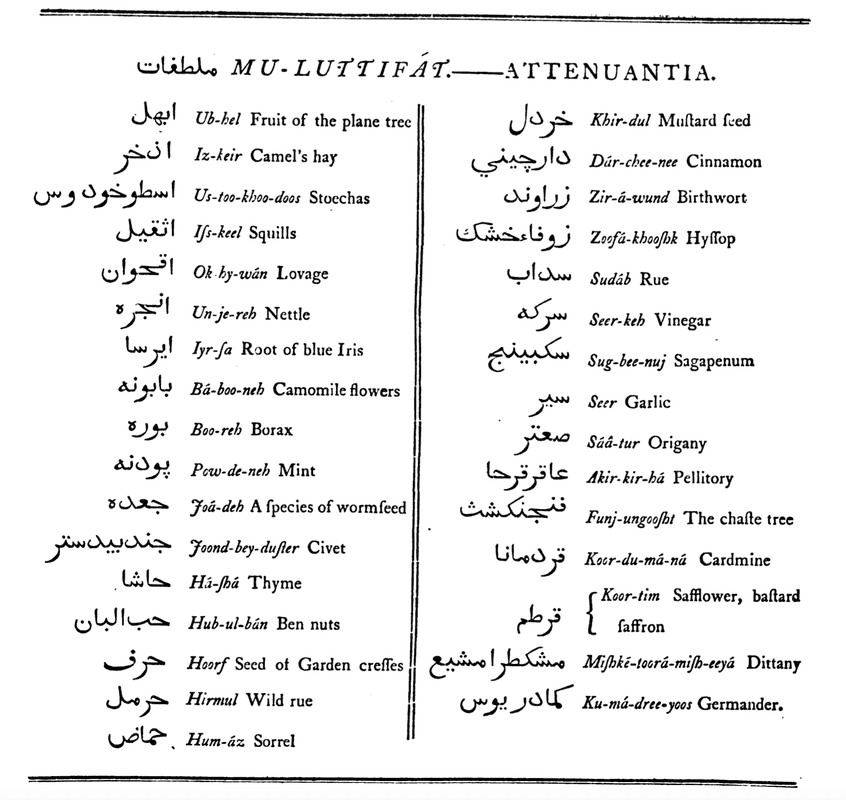 ملطفات MU-LUTTIFÁT.——ATTENUANTIA.
ابهل Ub-hel Fruit of the plane tree
اذخر Iz-keir Camel's hay
اسطوخودوس Us-too-khoo-doos Stœchas
اثقيل Iſs-keel Squills
اقحوان Ok-hy-wán Lovage
انجره Un-je-reh Nettle
ايرسا Iyr-ſa Root of blue Iris
بابونه Bá-boo-neh Camomile flowers
بوره Boo-reh Borax
پودنه Pow-de-neh Mint
جعده Joá-deh A ſpecies of wormſeed
جندبيدستر Joond-bey-duſter Civet
حاشا Há-ſhá Thyme
حب البان Hub-ul-bán Ben nuts
حرف Hoorf Seed of Garden creſſes
حرمل Hirmul Wild rue
حماض Hum-áz Sorrel
خردل Khir-dul Muſtard ſeed
دارچيني Dár-chee-nee Cinnamon
زراوند Zir-á-wund Birthwort
زوفاءخشك Zoofá-khooſhk Hyſſop
سداب Sudáb Rue
سركه Seer-keh Vinegar
سكبينج Sug-bee-nuj Sagapenum
سير Seer Garlic
صعتر Sáâ-tur Origany
عاقرقرحا Akir-kir-há Pellitory
فنجنكشت Funj-ungooſht The chaſte tree
قردمانا Koor-du-má-ná Cardmine
قرطم { Koor-tim Safflower, baſtard
ſaffron
مشكطرامشيع Miſhké-toorá-miſh-eeyá Dittany
كمادريوس Ku-má-dree-yoos Germander.